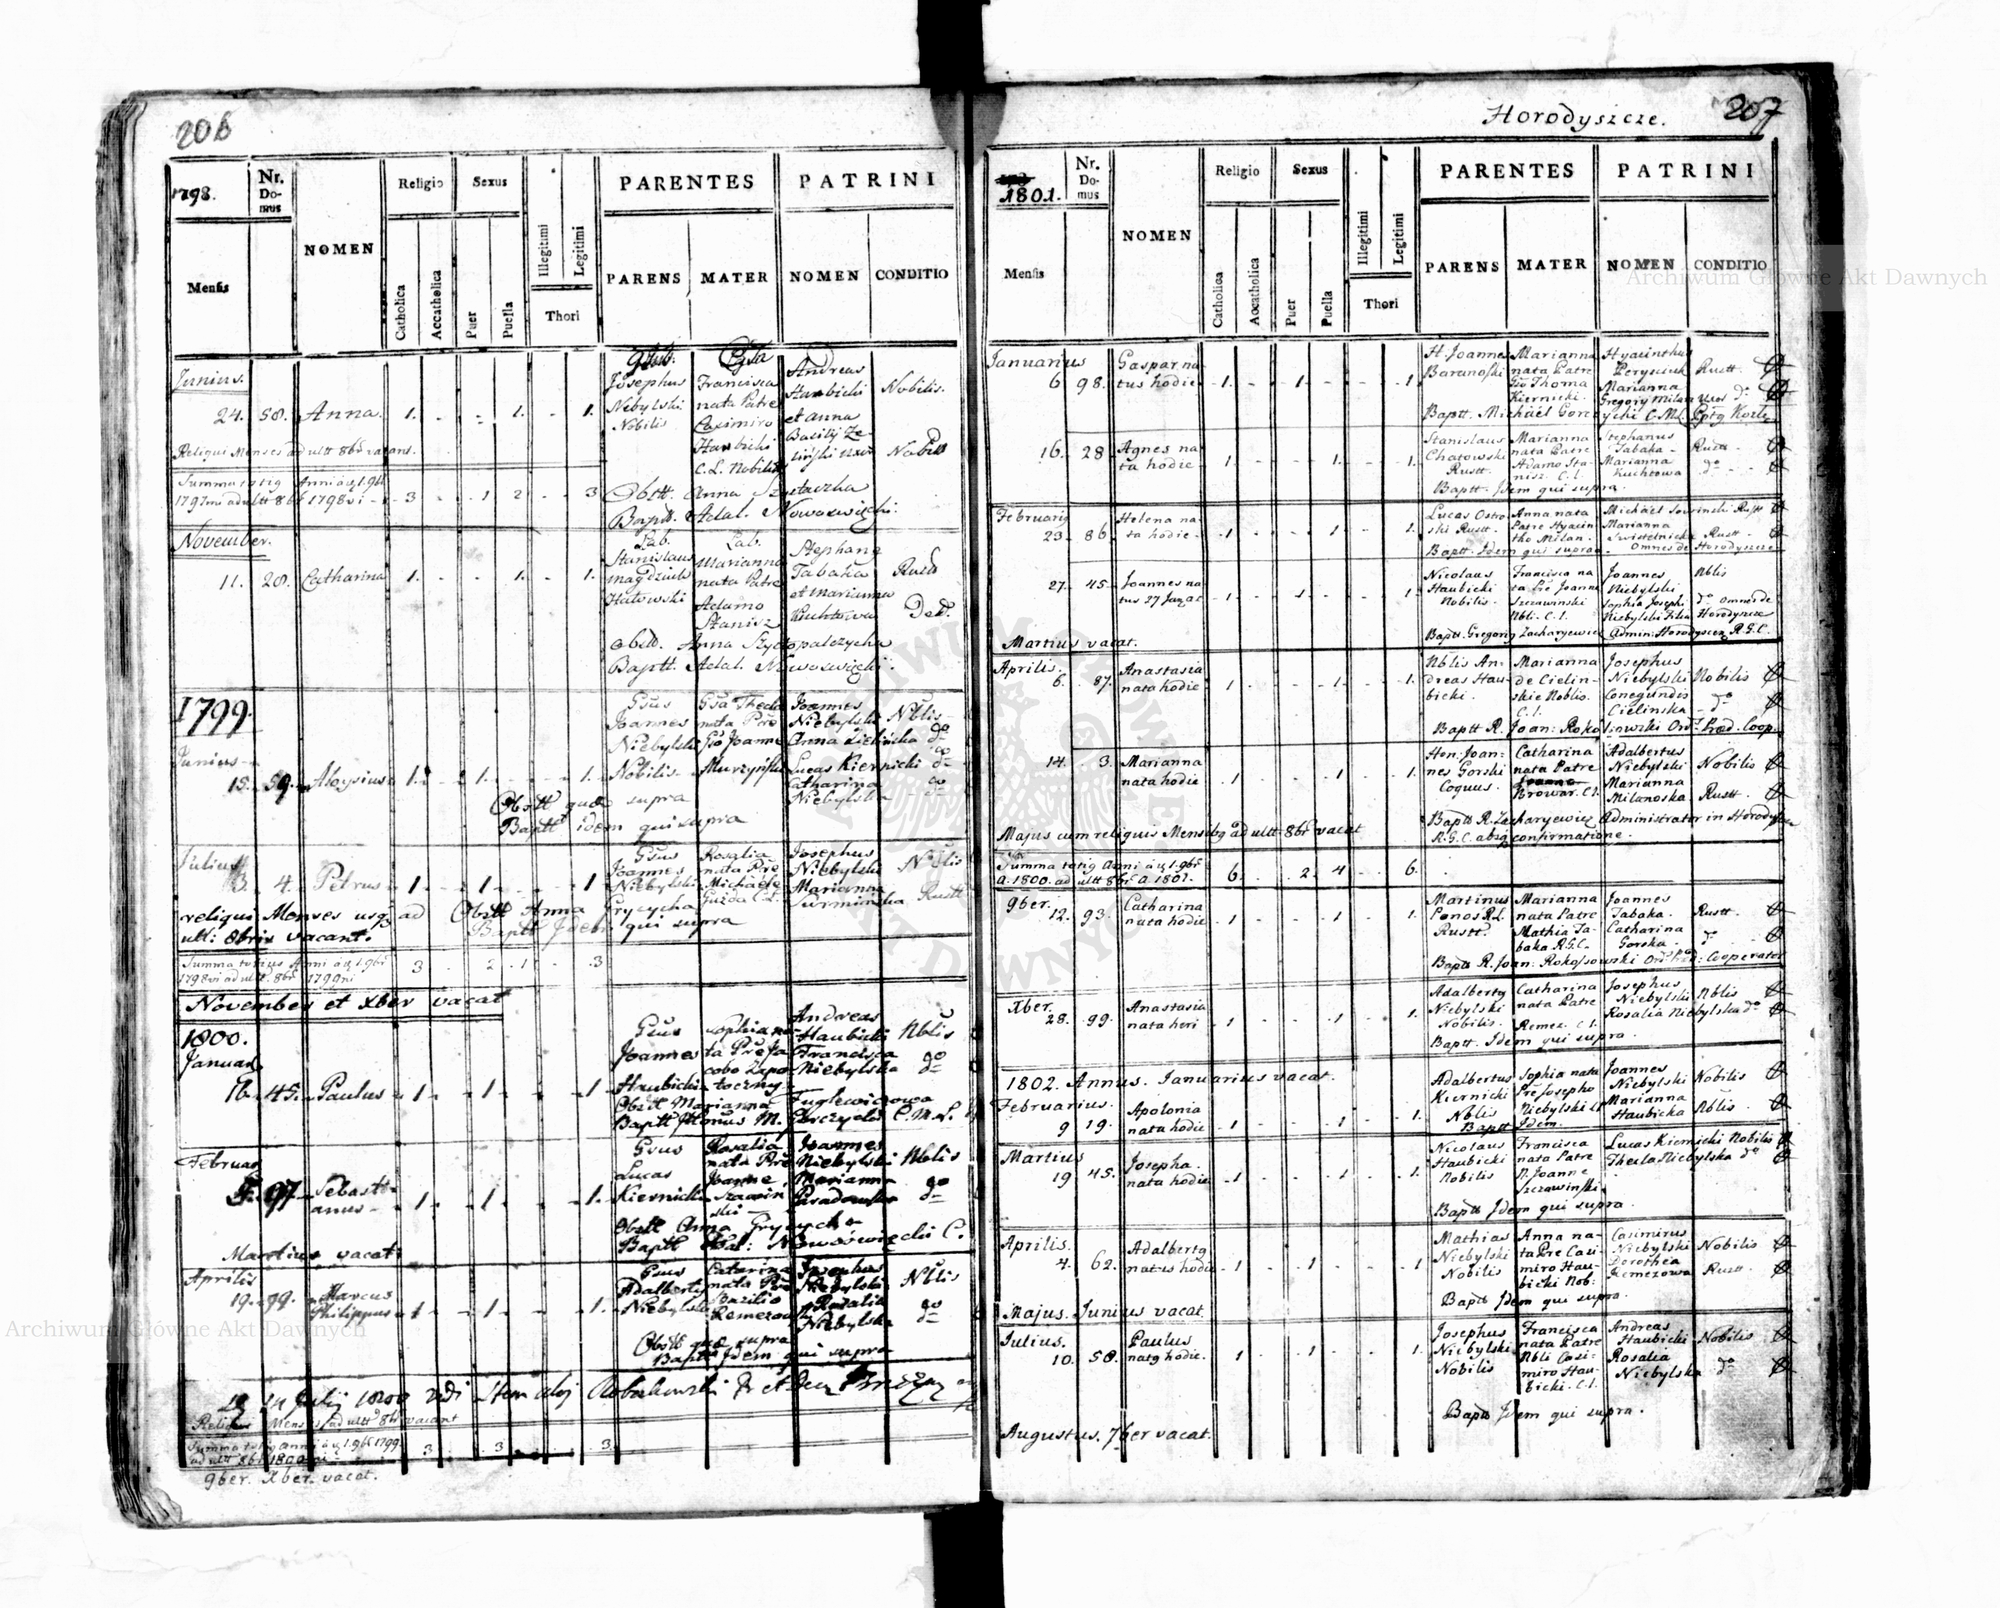 206
1798.
Nr. Domus
NOMEN
Religio
Sexus
PARENTES
PATRINI
Mensis
Catholica
Accatholica
Puer
Puella
Illegitimi
Legitimi
Thori
PARENS
MATER
NOMEN
CONDITIO
Junius.
24. 58. Anna. 1. 1. 1.
Josephus Nebylski Nobilis
Francisca nata Patre Casimiro Haubicki C. L. Nobilis
Andreas Haubicki et anna Basilij
Nobilis.
Nobilis
Reliqui Menses ad ultt 8bris vacant.
Summa totig Anni á 1. 9br
1797mi ad ultt 8br 1798vi 3 1 2 3
Obstt. Anna
Baptt. Adal. Nowoswięcki.
November.
11. 28. Catharina 1. 1. 1.
Lab. Stanislaus Hatowski
Lab. Marianna nata Patre Adamo Stanisz
Stephanus Tabaka et Marianna Kuchtowa
Rustt
Obstt. Anna
Baptt. Adal. Nowoswięcki.
1799.
Junius
15. 59. Aloysius 1. 1. 1.
Gsus Joannes Niebylski Nobilis
Gsa Thecla nata Pre Gso Joanne Murzyński
Joannes Niebylski
Nblis
Lucas Kiernicki
Catharina Niebylska
Obstt quae supra
Baptt idem qui supra
Julius
13. 4. Petrus 1 1 1
Gsus Joannes Niebylski
Rosalia nata Pre Michaele Guzda C. L.
Josephus Niebylski Marianna
Nblis
Rustt
reliqui Menses usq ad
ult: 8bris vacant.
Obstt Anna Grycycha
Baptt Idem qui supra
Summa totius Anni á 1. 9br
1798vi ad ultt. 8br 1799ni 3 2 1 3
November et Xber vacat
1800.
Januar.
16. 45. Paulus 1 1 1
Gsus Joannes Haubicki
Sophia nata Pre Jacobo Zapotoczny
Andreas Haubicki Francisca Niebylska
Nblis
do
Obstt Marianna Fuglewiczowa
Baptt M. Gorczycki C. M. L.
Februar.
97 Sebastianus 1 1 1.
Gsus Lucas Kiernicki
Rosalia nata Pre Joanne Szczawinski
Joannes Niebylski Marianna
Nblis
do
Obstt Anna Grycycha
Baptt Adal: Nowoswięcki C.
Martius vacat
Aprilis
19. 99. Marcus Philippus 1 1 1.
Gsus Adalbertg Niebylski
Catarina nata Pre Bazilio Remezow
Josephus Niebylski Rosalia Niebylska
Nblis
do
Obstt quae supra
Baptt Idem qui supra
Reliqui Menses ad ultt 8br vacant
Summa totig Anni á 1. 9br 1799.
ad ultt 8br 1800 3 3 3
9ber. Xber. vacat.
Horodyszcze.
207
1801.
Nr. Domus
NOMEN
Religio
Sexus
PARENTES
PATRINI
Mensis
Catholica
Accatholica
Puer
Puella
Illegitimi
Legitimi
Thori
PARENS
MATER
NOMEN
CONDITIO
Januarius
6 98. Gaspar natus hodie 1. 1. 1.
H. Joannes Baranoski
Marianna nata Patre Gso Thoma Kiernicki.
Hyacinthus
Marianna Gregory Milan uxor
Rustt
do
Baptt. Michael Gorczycki C. M. L.
16. 28 Agnes nata hodie 1. 1. 1.
Stanislaus Chatowski Rustt.
Marianna nata Patre Adamo Stanisz. C. L.
Stephanus Tabaka Marianna Kuchtowa
Rustt
do
Baptt. Idem qui supra.
Februarig
23. 86. Helena nata hodie 1 1 1.
Lucas Ostroski Rustt.
Anna nata Patre Hyacintho Milan.
Michael Sowinski Rustt
Marianna Swistelnicka Rustt.
Baptt. Idem qui supra. Omnes de Horodyszcze
27. 45. Joannes natus 27 1. 1 1.
Nicolaus Haubicki Nobilis.
Francisca nata Pre Joanne Szczawinski Nbli. C. L.
Joannes Niebylski
Sophia Josephi Niebylski Filia
Nblis
do omnes de Horodyszcze
Baptt. Gregorig Zacharyewicz Admin: Horodyscen R. G. C.
Martius vacat.
Aprilis.
6. 87. Anastasia nata hodie 1 1 1.
Nblis Andreas Haubicki.
Marianna de Cielinskie Noblis. C. L.
Josephus Niebylski Conegundis Cielinska
Nobilis
do
Baptt R. Joan: Rokosowski Ord: Præd. Coop.
14. 3. Marianna nata hodie 1 1 1.
Hon: Joannes Gorski Coquus.
Catharina nata Patre Browar. C. L.
Adalbertus Niebylski Marianna Milanoska
Nobilis
Rustt.
Baptt R. Zacharyewicz Administrator in Horodyszcze
R. G. C. absq confirmatione.
Majus cum reliquis Mensibg ad ultt 8br vacat
Summa totig Anni á 1. 9br
a. 1800. ad ultt 8br a. 1801. 6. 2. 4 6.
9ber.
12. 93. Catharina nata hodie 1 1 1.
Martinus Panos R. L. Rustt.
Marianna nata Patre Mathia Tabaka R. G. C.
Joannes Tabaka. Catharina Gorska
Rustt.
do
Baptt R. Joan: Rokossowski Ord: Præd: Cooperator
Xber.
28. 99. Anastasia nata heri 1 1 1.
Adalbertg Niebylski Nobilis.
Catharina nata Patre Remez. C. L.
Josephus Niebylski Nblis
Rosalia Niebylska do
Baptt. Idem qui supra.
1802. Annus. Januarius vacat.
Februarius.
9 19. Apolonia nata hodie 1 1 1.
Adalbertus Kiernicki Nblis
Sophia nata Pre Josepho Niebylski
Joannes Niebylski Marianna Haubicka
Nobilis
Nblis
Baptt Idem.
Martius
19 45. Josepha. nata hodie 1 1 1.
Nicolaus Haubicki Nobilis
Francisca nata Patre N. Joanne Szczawinski
Lucas Kiernicki Nobilis
Thecla Niebylska do
Baptt Idem qui supra.
Aprilis.
4. 62. Adalbertg natus hodie 1 1 1
Mathias Niebylski Nobilis
Anna nata Pre Casimiro Haubicki Nob:
Casimirus Niebylski Dorothea Remezowa
Nobilis
Rustt.
Baptt Idem qui supra.
Majus. Junius vacat
Julius.
10. 58. Paulus natg hodie. 1 1 1.
Josephus Niebylski Nobilis
Francisca nata Patre Nbli Casimiro Haubicki. C. L.
Andreas Haubicki Rosalia Niebylska
Nobilis
do
Baptt Idem qui supra.
Augustus. 7ber vacat.
Archiwum Główne Akt Dawnych
Archiwum Główne Akt Dawnych
ARCHIWUM GŁÓWNE AKT DAWNYCH